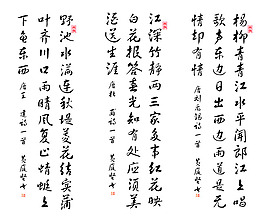 楊柳青青江水平闻郎江上唱
歌声东边日出西边雨道是无
情却有情
唐刘禹锡诗一首
江深竹静两三家多事红花映
白花报答春光知有处应须美
酒送生涯
唐杜甫诗一首
野池水满连秋堤菱花结实蒲
叶齐川口雨晴风复止蜻蜓上
下鱼东西
唐王建诗一首